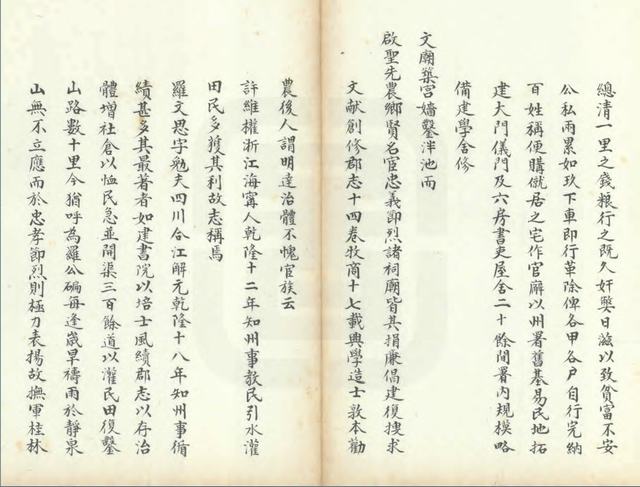 總清一里之錢糧行之既久奸弊日滋以致貧富不安
公私兩累如玖下車即行革除俾各甲各戶自行完納
百姓稱便購僦居之宅作官廨以州署舊基易民地拓
建大門儀門及六房書吏屋舍二十餘間署內規模略
備建學舍修
文廟築宮墻鑿泮池而
啟聖先農鄉賢名宦忠義節烈諸祠廟皆其捐廉倡建復搜求
文献創修郡志十四卷牧商十七載興學造士敦本勸
農後人謂明達治體不愧官族云
許維權浙江海寧人乾隆十二年知州事教民引水灌
田民多獲其利故志稱焉
羅文思字勉夫四川合江解元乾隆十八年知州事循
績甚多其最著者如建書院以培士風續郡志以存治
體增社倉以恤民急並開渠三百餘道以灌民田復鑿
山路數十里今猶呼為羅公碥每逢歲旱禱雨於靜泉
山無不立應而於忠孝節烈則極力表揚故撫軍桂林